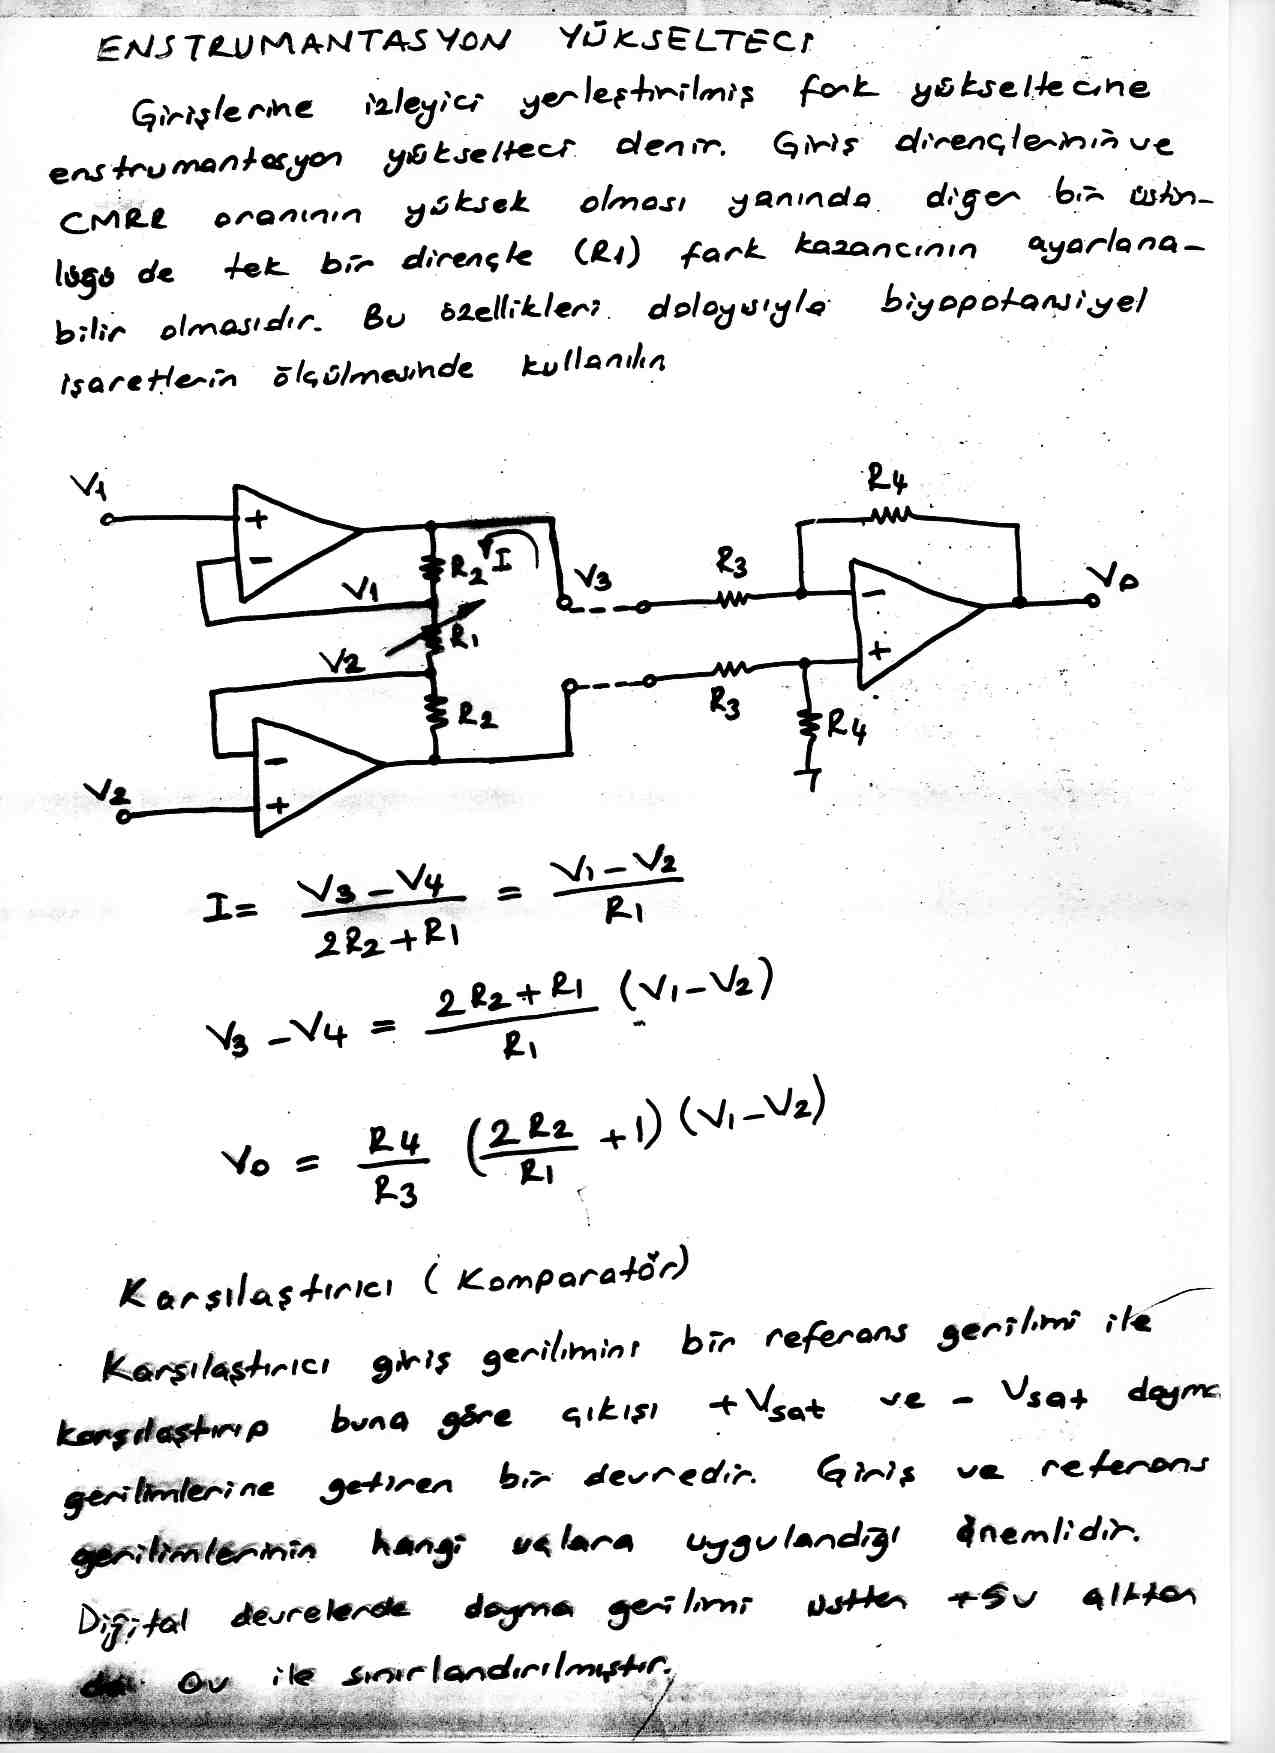 ENSTRUMANTASYON YÜKSELTECİ
Girişlerine izleyici yerleştirilmiş fark yükseltecine
enstrumantasyon yükselteci denir. Giriş dirençlerinin ve
CMRR oranının yüksek olması yanında diğer bir üstün-
lüğü de tek bir dirençle (R1) fark kazancının ayarlana-
bilir olmasıdır. Bu özellikleri dolayısıyla biyopotansiyel
işaretlerin ölçülmesinde kullanılır
V1
+
-
R2
I
V1
V3
R3
R4
-
+
Vo
R1
V2
R2
R3
R4
-
+
V2
I = (V3 - V4) / (2R2 + R1) = (V1 - V2) / R1
V3 - V4 = (2R2 + R1) / R1 (V1 - V2)
Vo = R4 / R3 (2R2 / R1 + 1) (V1 - V2)
Karşılaştırıcı (Komparatör)
Karşılaştırıcı giriş gerilimini bir referans gerilimi ile
karşılaştırıp buna göre çıkışı +Vsat ve -Vsat doyma
gerilimlerine getiren bir devredir. Giriş ve referans
gerilimlerinin hangi uçlara uygulandığı önemlidir.
Digital devrelerde doyma gerilimi üstten +5v alttan
da 0v ile sınırlandırılmıştır.